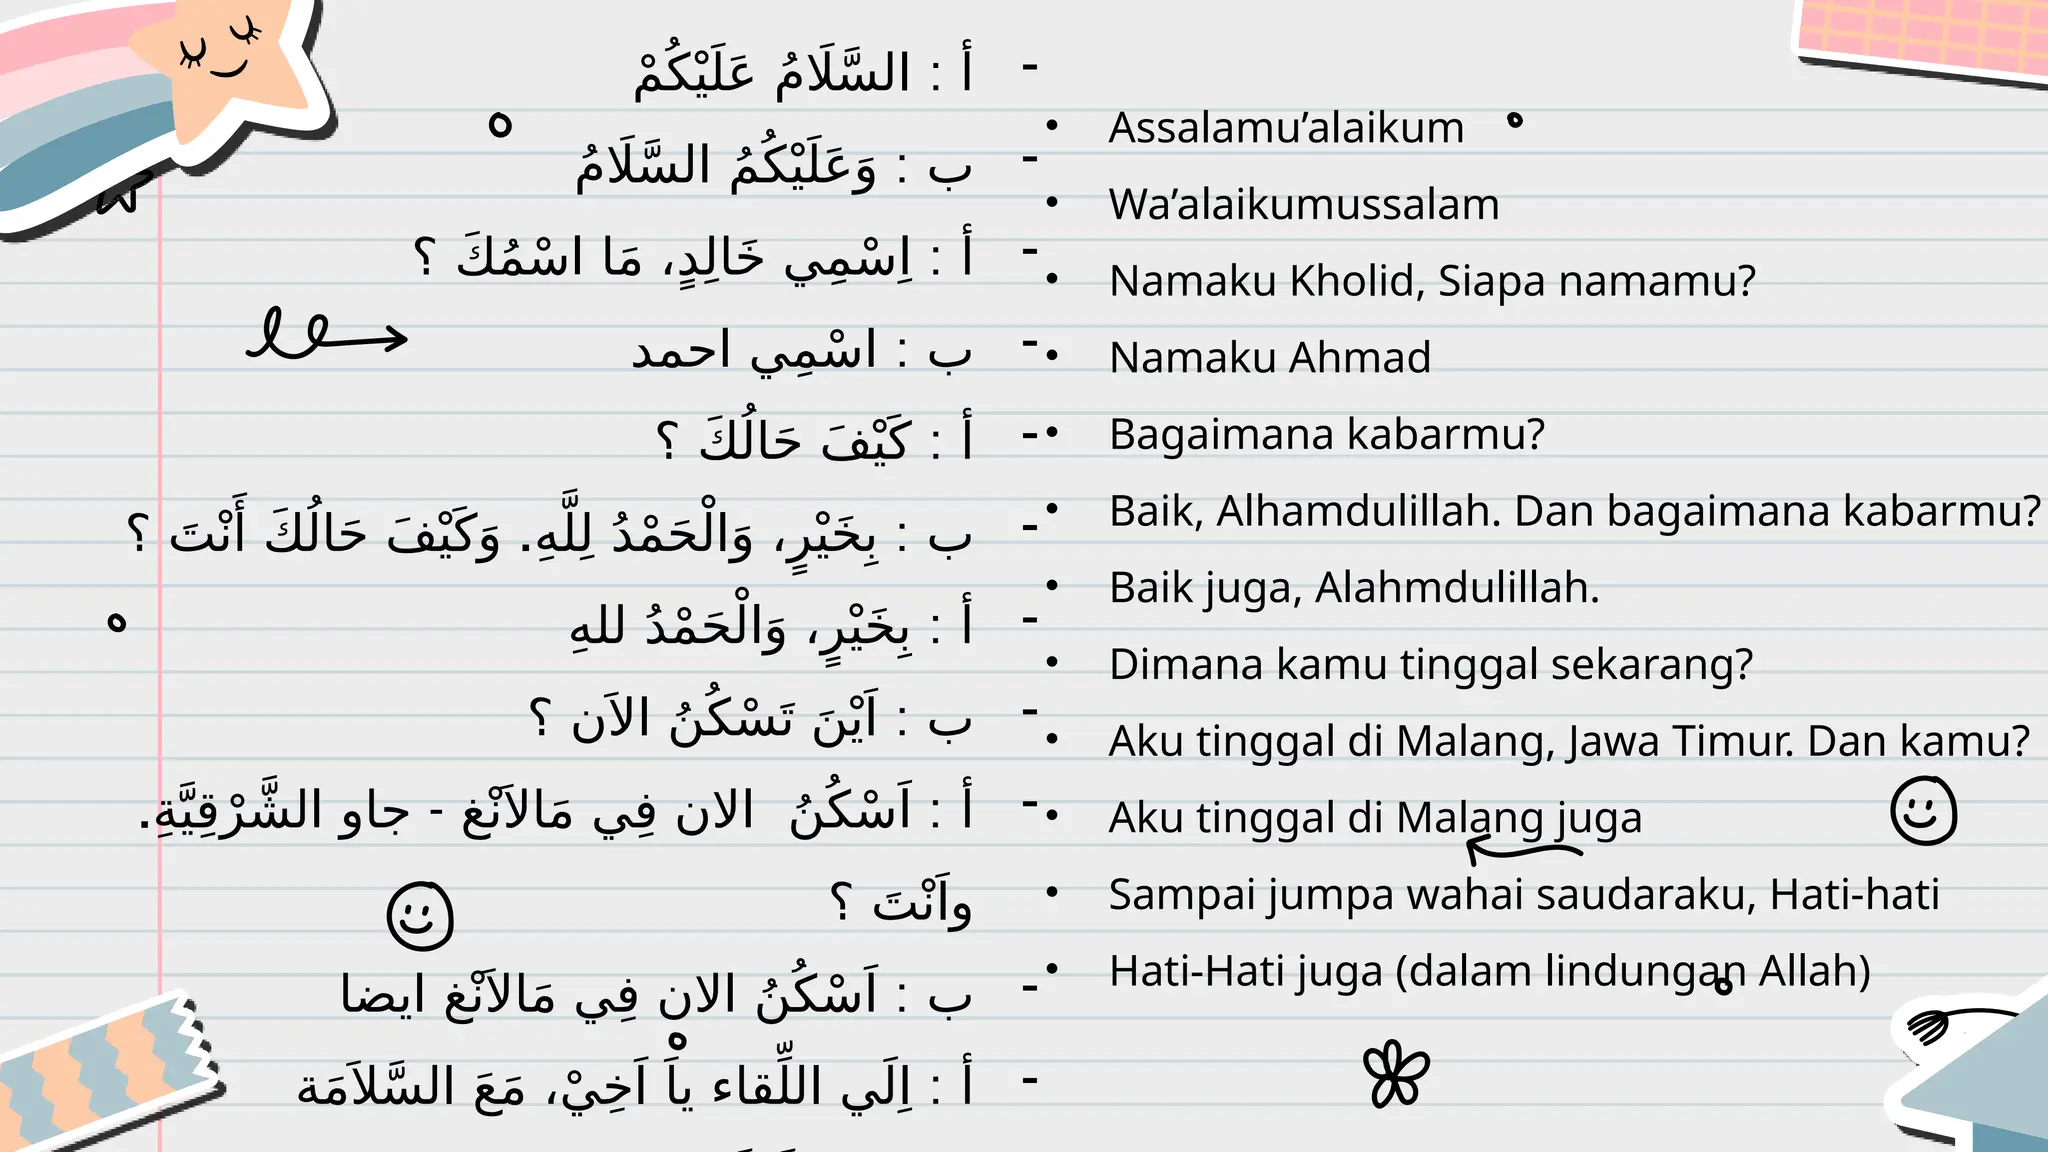 - أ : السَّلَامُ عَلَيْكُمْ
- ب : وَعَلَيْكُمُ السَّلَامُ
- أ : اِسْمِي خَالِدٍ، مَا اسْمُكَ ؟
- ب : اسْمِي احمد
- أ : كَيْفَ حَالُكَ ؟
- ب : بِخَيْرٍ، وَالْحَمْدُ لِلَّهِ. وَكَيْفَ حَالُكَ أَنْتَ ؟
- أ : بِخَيْرٍ، وَالْحَمْدُ للهِ
- ب : اَيْنَ تَسْكُنُ الاَن ؟
- أ : اَسْكُنُ الان فِي مَالاَنْغ - جاو الشَّرْقِيَّةِ.
واَنْتَ ؟
- ب : اَسْكُنُ الان فِي مَالاَنْغ ايضا
- أ : اِلَي اللِّقاء ياَ اَخِيْ، مَعَ السَّلاَمَة
• Assalamu’alaikum
• Wa’alaikumussalam
• Namaku Kholid, Siapa namamu?
• Namaku Ahmad
• Bagaimana kabarmu?
• Baik, Alhamdulillah. Dan bagaimana kabarmu?
• Baik juga, Alahmdulillah.
• Dimana kamu tinggal sekarang?
• Aku tinggal di Malang, Jawa Timur. Dan kamu?
• Aku tinggal di Malang juga
• Sampai jumpa wahai saudaraku, Hati-hati
• Hati-Hati juga (dalam lindungan Allah)